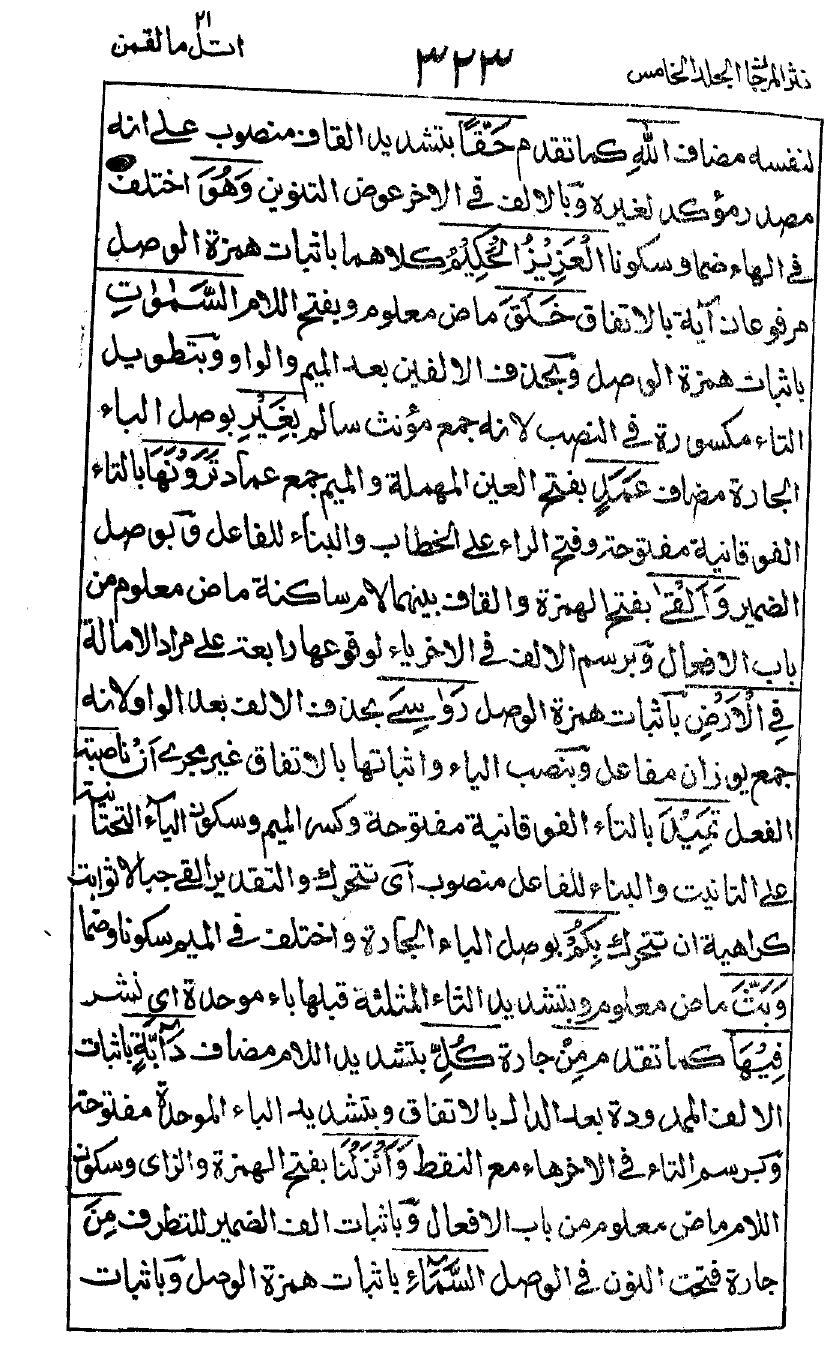 نثر المرجان المجلد الخامس
٣٢٣
اتل ما ٢١ لقمن
لنفسه مضاف اللّٰهِ كما تقدم حَقًّا بتشديد القاف منصوب على انه
مصدر مؤكد لغيره وبالالف في الاخر عوض التنوين وَهُوَ اختلف
في الهاء ضما وسكونا الْعَزِيْزُ الْحَكِيْمُ كلاهما باثبات همزة الوصل
مرفوعان آية بالاتفاق خَلَقَ ماض معلوم وبفتح اللام السَّمٰوٰتِ
باثبات همزة الوصل وبحذف الالفين بعد الميم والواو وبتطويل
التاء مكسورة في النصب لانه جمع مؤنث سالم بِغَيْرِ بوصل الباء
الجارة مضاف عَمَدٍ بفتح العين المهملة والميم جمع عماد تَرَوْنَهَا بالتاء
الفوقانية مفتوحة وفتح الراء على الخطاب والبناء للفاعل وبوصل
الضمير وَاَلْقٰى بفتح الهمزة والقاف بينهما لام ساكنة ماض معلوم من
باب الافعال وبرسم الالف في الاخر ياء لوقوعها رابعة على مراد الامالة
فِي الْاَرْضِ باثبات همزة الوصل رَوٰسِيَ بحذف الالف بعد الواو لانه
جمع يوزان مفاعل وبنصب الياء واثباتها بالاتفاق غير مجرى اَنْ ناصبة
الفعل تَمِيْدَ بالتاء الفوقانية مفتوحة وكسر الميم وسكون الياء التحتانية
على التانيث والبناء للفاعل منصوب اى تتحرك والتقدير القى جبالا ثوابت
كراهية ان تتحرك بِكُمْ بوصل الباء الجارة واختلف في الميم سكونا وضما
وَبَثَّ ماض معلوم وبتشديد الثاء المثلثة قبلها باء موحدة اى نشر
فِيْهَا كما تقدم مِنْ جارة كُلِّ بتشديد اللام مضاف دَآبَّةٍ باثبات
الالف الممدودة بعد الدال بالاتفاق وبتشديد الباء الموحدة مفتوحة
وبرسم التاء في الاخر هاء مع النقط وَاَنْزَلْنَا بفتح الهمزة والزاى وسكون
اللام ماض معلوم من باب الافعال وباثبات الف الضمير للتطرف مِنَ
جارة فتحت النون في الوصل السَّمَآءِ باثبات همزة الوصل وباثبات